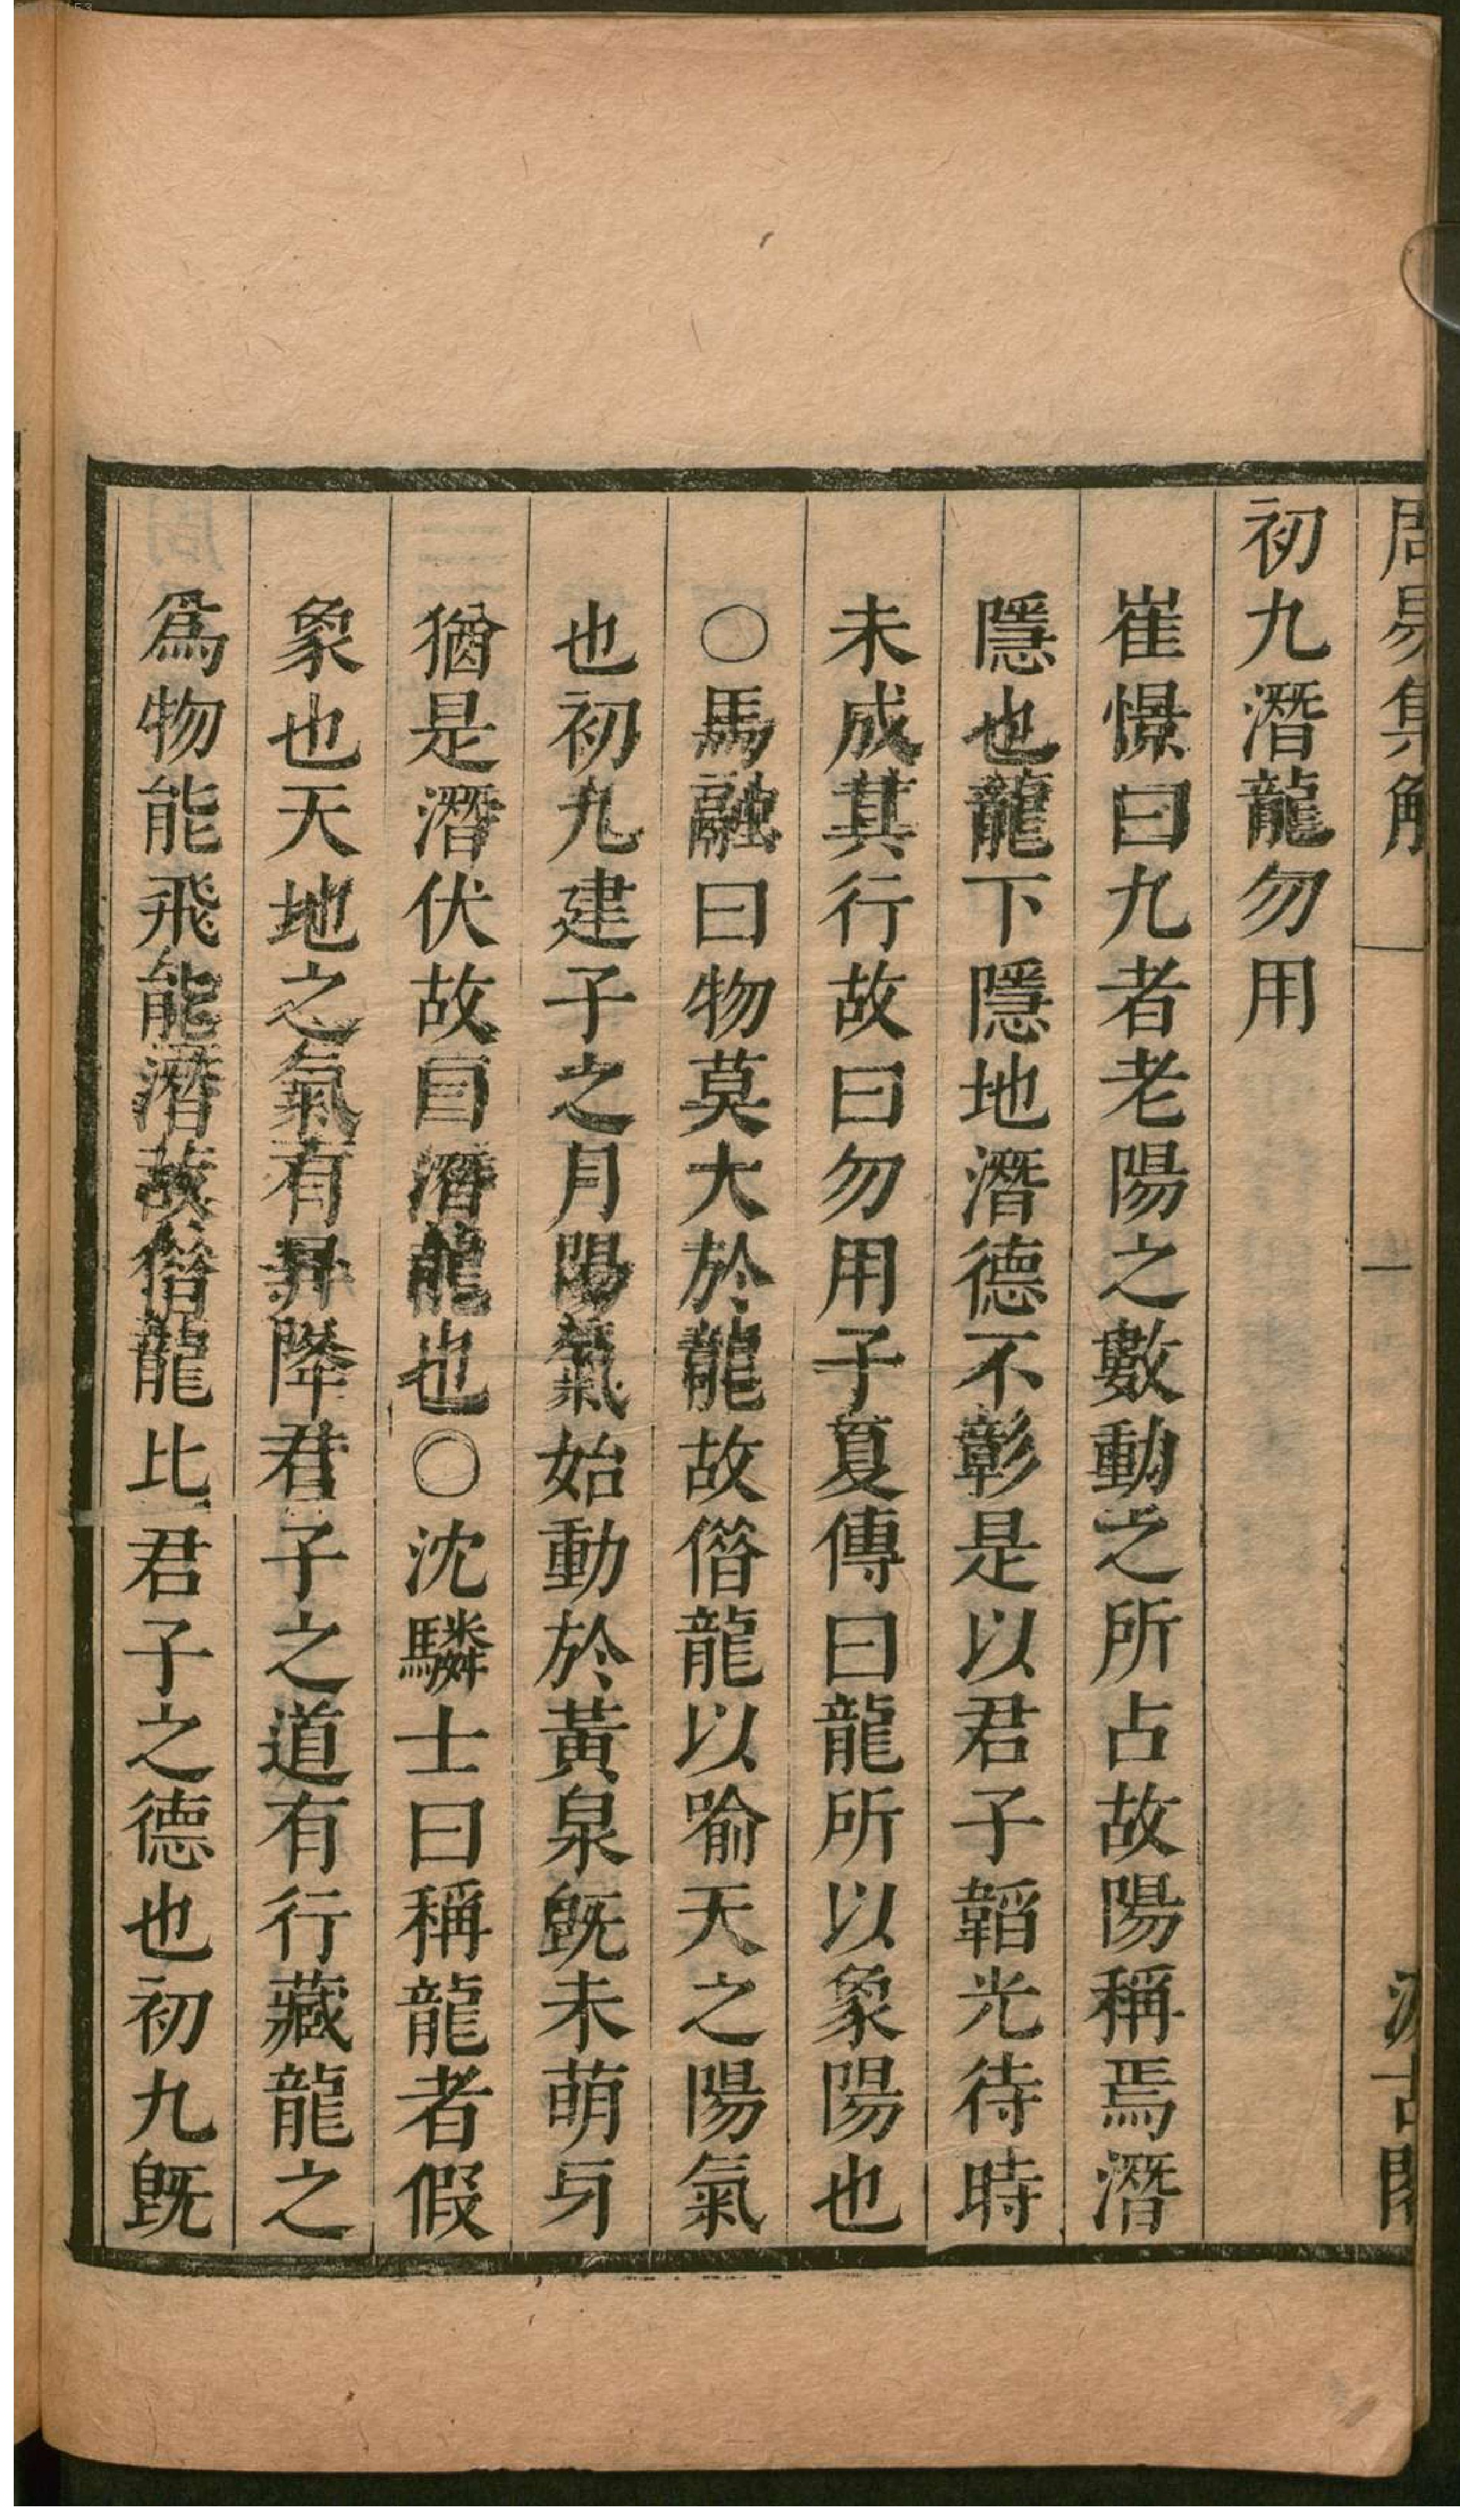 周易集解 一 汲古閣
初九潛龍勿用
崔憬曰九者老陽之數動之所占故陽稱焉潛
隱也龍下隱地潛德不彰是以君子韜光待時
未成其行故曰勿用子夏傳曰龍所以象陽也
〇馬融曰物莫大於龍故偺龍以喻天之陽氣
也初九建子之月陽氣始動於黃泉旣未萌牙
猶是潛伏故曰潛龍也〇沈驎士曰稱龍者假
象也天地之氣有昇降君子之道有行藏龍之
爲物能飛能潛故偺龍比君子之德也初九旣